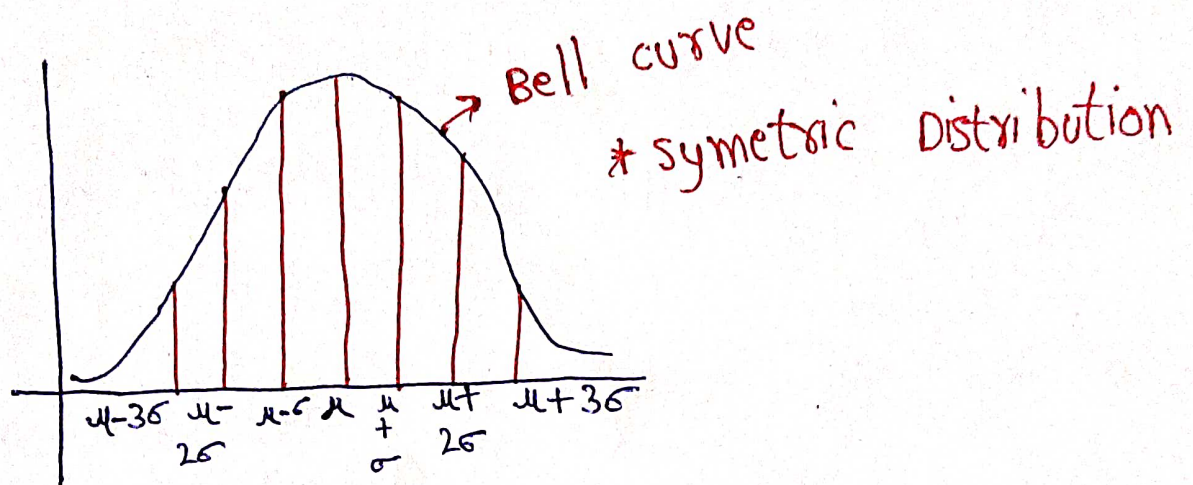 Bell curve
* symetric Distribution
μ-3σ μ-2σ μ-σ μ μ+σ μ+2σ μ+3σ